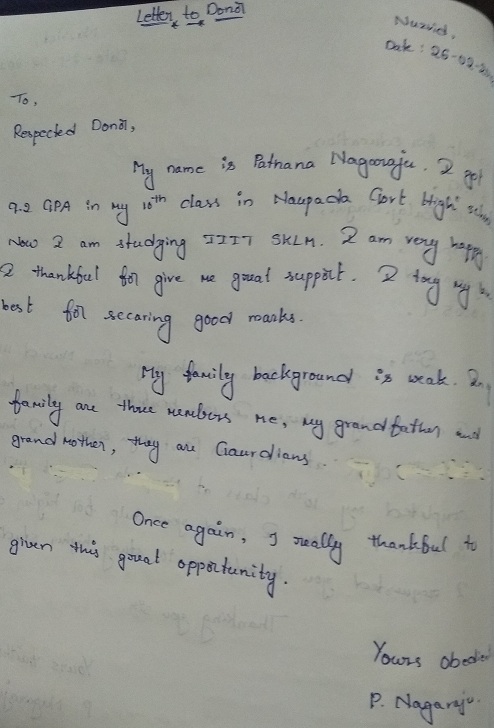 Letter to Donor
Nuzvid,
Date : 26-02-
To,
Respected Donor,
My name is Pathana Nagaraju. I get
9.2 GPA in my 10th class in Naupada Govt High
Now I am studying IIIT SKLM. I am very happy.
I thankful for give me great support. I try my
best for seccaring good marks.
My family background is weak. In
family are three members me, my grandfather and
grand mother, they are Gaurdians.
Once again, I really thankful to
given this great opportunity.
Yours obedie
P. Nagaraju.